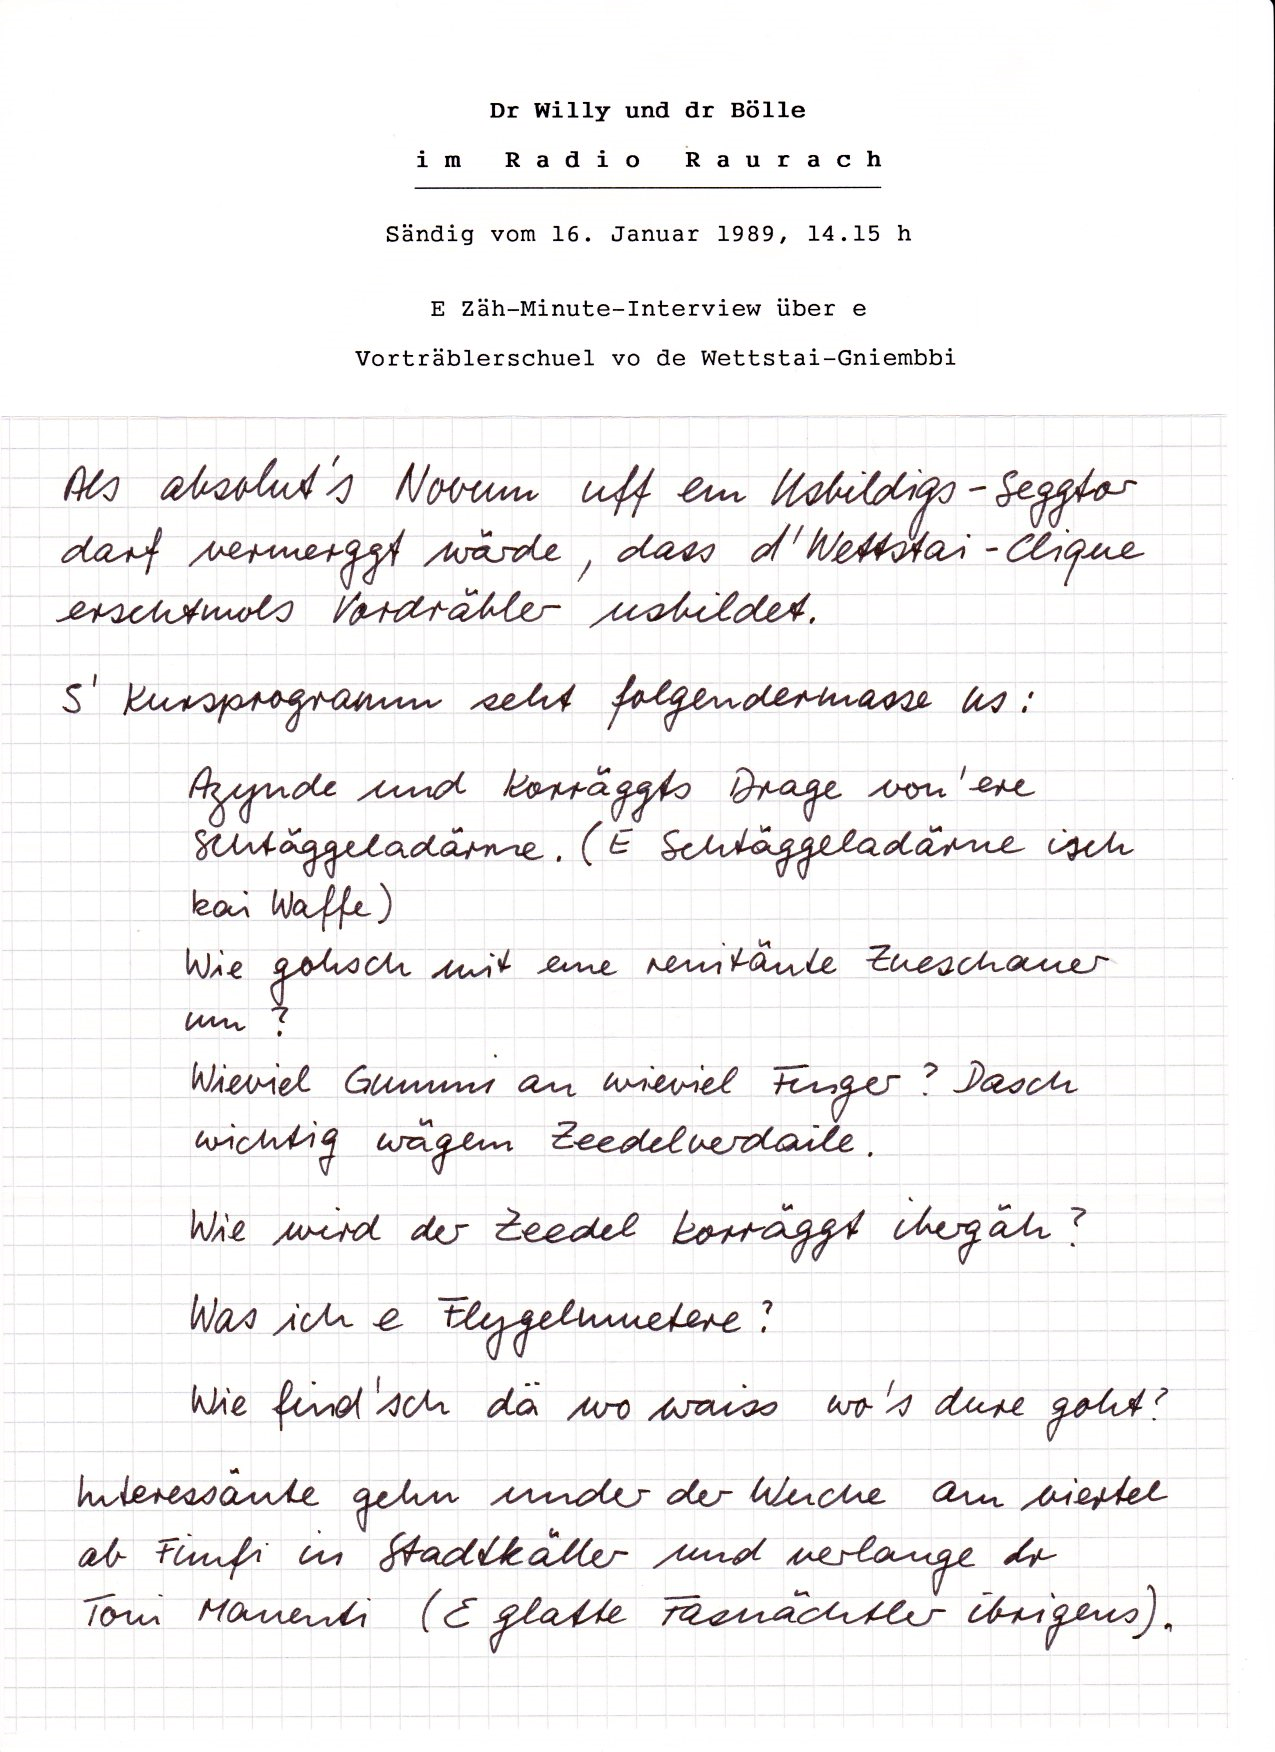 Dr Willy und dr Bölle
im Radio Raurach
Sändig vom 16. Januar 1989, 14.15 h
E Zäh-Minute-Interview über e
Vorträblerschuel vo de Wettstai-Gniembbi
Als absolut's Novum uff em Usbildigs-Seggtor
darf vermerggt wärde, dass d'Wettstai-Clique
erschtmols Vordräbler usbildet.
S' Kursprogramm seht folgendermasse us:
Azynde und Korräggts Drage von'ere
Schtäggeladärne. (E Schtäggeladärne isch
kai Waffe)
Wie gohsch mit eme renitänte Zueschauer
um?
Wieviel Gummi an wieviel Finger? Dasch
wichtig wägem Zeedelverdaile.
Wie wird der Zeedel korräggt ibergäh?
Was isch e Flygelmuetere?
Wie find'sch dä wo waiss wo's dure goht?
Interessänte gehn under der Wuche am viertel
ab Fimfi in Stadtkäller und verlange dr
Toni Manenti (E glatte Fasnächtler ibrigens).